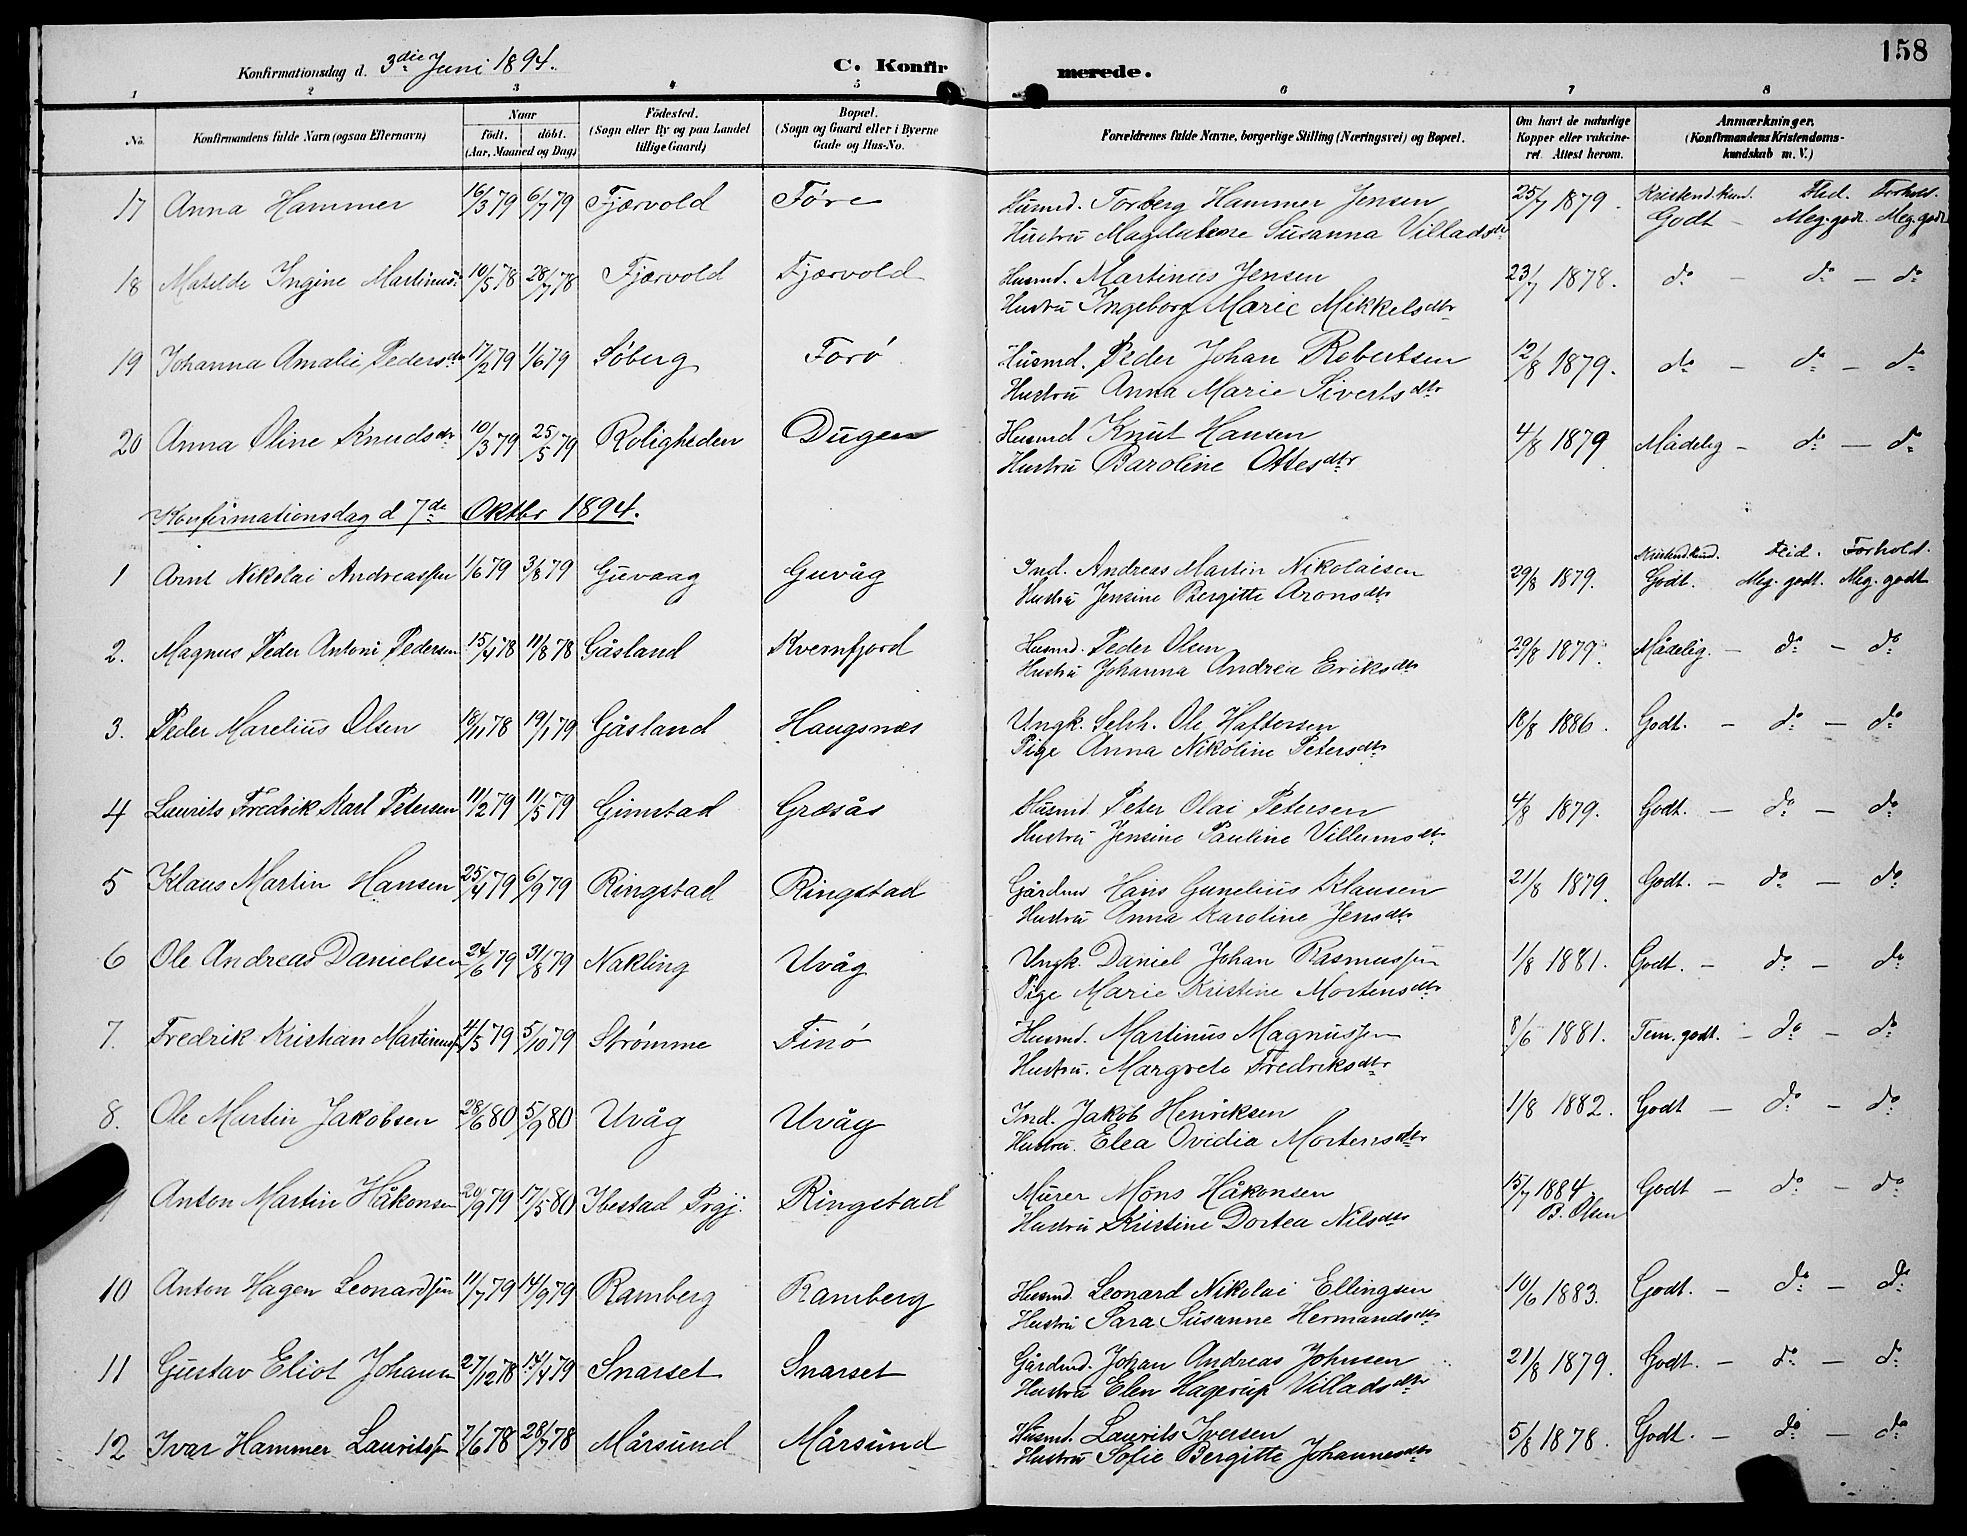 158
Konfirmationsdag d. 3die Juni 1894. C. Konfirmerede.
1 2 3 4 5 6 7 8
No. Konfirmandens fulde Navn (ogsaa Efternavn) Naar födt. döbt. (Aar, Maaned og Dag) Födested. (Sogn eller By og paa Landet tillige Gaard) Bopæl. (Sogn og Gaard eller i Byerne Gade og Hus-No. Forældrenes fulde Navne, borgerlige Stilling (Næringsvei) og Bopæl. Om havt de naturlige Kopper eller vakcineret. Attest herom. Anmærkninger. (Konfirmandens Kristendomskundskab m. V.)
17 Anna Hammer 16/3 79 6/7 79 Fjærvold Føre Husmd. Torberg Hammer Jensen 25/7 1879. Kristend.kund. Flid. Forhold.
Hustru Magdalene Susanna Villadsdtr Godt - Meg. godt. Meg. godt
18 Matilde Ingine Martinusd. 10/5 78 28/7 78 Fjærvold Fjærvold Husmd. Martinus Jensen 23/7 1878. do - do - do
Hustru Ingeborg Marie Mikkelsdtr
19 Johanna Amalie Pedersdtr 17/2 79 1/6 79 Søberg Forø Husmd. Peder Johan Robertsen 12/8 1879. do - do - do
Hustru Anna Marie Sivertsdtr
20 Anna Oline Knudsdtr 10/3 79 25/5 79 Roligheden Dugen Husmd Knut Hansen 4/8 1879 Mådelig - do - do
Hustru Baroline Ottesdtr
Konfirmationsdag d 7de Oktbr 1894.
Kristend.kund. Flid. Forhold.
1 Arnt Nikolai Andreassen 1/6 79 3/8 79 Guvaag Guvåg Ind. Andreas Martin Nikolaisen 29/8 1879. Godt. Meg. godt. Meg. godt
Hustru Jensine Bergitte Aronsdtr
2. Magnus Peder Antoni Pedersen 15/4 78 11/8 78 Gåsland Kvernfjord Husmd. Peder Olsen 29/8 1879. Mådelig. - do - do
Hustru Johanna Andrea Eriksdtr
3. Peder Marelius Olsen 18/11 78 19/1 79 Gåsland Haugsnes Ungk. Selvh. Ole Haftorsen 18/8 1886. Godt. - do - do
Pige Anna Nikoline Petersdtr
4 Laurits Fredrik Karl Petersen 11/2 79 11/5 79 Gimstad Græsås Husmd. Peter Olai Petersen 4/8 1879. Godt. - do - do
Hustru Jensine Pauline Villumsdtr
5 Klaus Martin Hansen 25/4 79 6/9 79 Ringstad Ringstad Gårdmd Hans Gunelius Klausen 21/8 1879. Godt. - do - do
Hustru Anna Karoline Jensdtr
6 Ole Andreas Danielsen 24/6 79 31/8 79 Nakling Uvåg Ungk. Daniel Johan Rasmussen 1/8 1881. Godt. - do - do
Pige Marie Kristine Mortensdtr
7. Fredrik Kristian Martinus. 4/5 79 5/10 79 Strømme Finø Husmd. Martinus Magnussen 8/6 1881. Tem. godt. - do - do
Hustru. Margrete Fredriksdtr
8. Ole Martin Jakobsen 28/6 80 5/9 80 Uvåg Uvåg Ind. Jakob Henriksen 1/8 1882. Godt - do - do
Hustru. Elea Ovidia Mortensdtr
Anton Martin Håkonsen 20/9 79 17/5 80 Ibestad Prgj. Ringstad Murer Møns Håkonsen 15/7 1884. Godt - do - do
Hustru Kristine Dortea Nilsdtr B. Olsen
10 Anton Hagen Leonardsen 11/7 79 14/9 79 Ramberg Ramberg Husmd. Leonard Nikolai Ellingsen 10/6 1883. Godt. - do - do
Hustru Sara Susanne Hermandsdtr
11 Gustav Eliot Johans 27/12 78 14/4 79 Snarset Snarset Gårdmd. Johan Andreas Johnsen 21/8 1879. Godt. - do - do
Hustru Elen Hagerup Villadsdtr
12 Ivar Hammer Lauritssen 7/6 78 28/7 78 Mårsund Mårsund Husmd. Laurits Iversen 5/8 1878. Godt. - do - do
Hustru Sofie Bergitte Johannesdtr